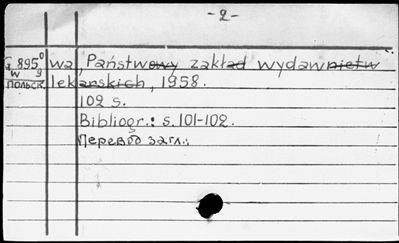 -2-
G 895⁰ wa, Państwowy zakład wydawnictw
W 9
польск. lekarskich, 1958.
102 s.
Bibliogr.: s. 101-102.
Перевод загл.: